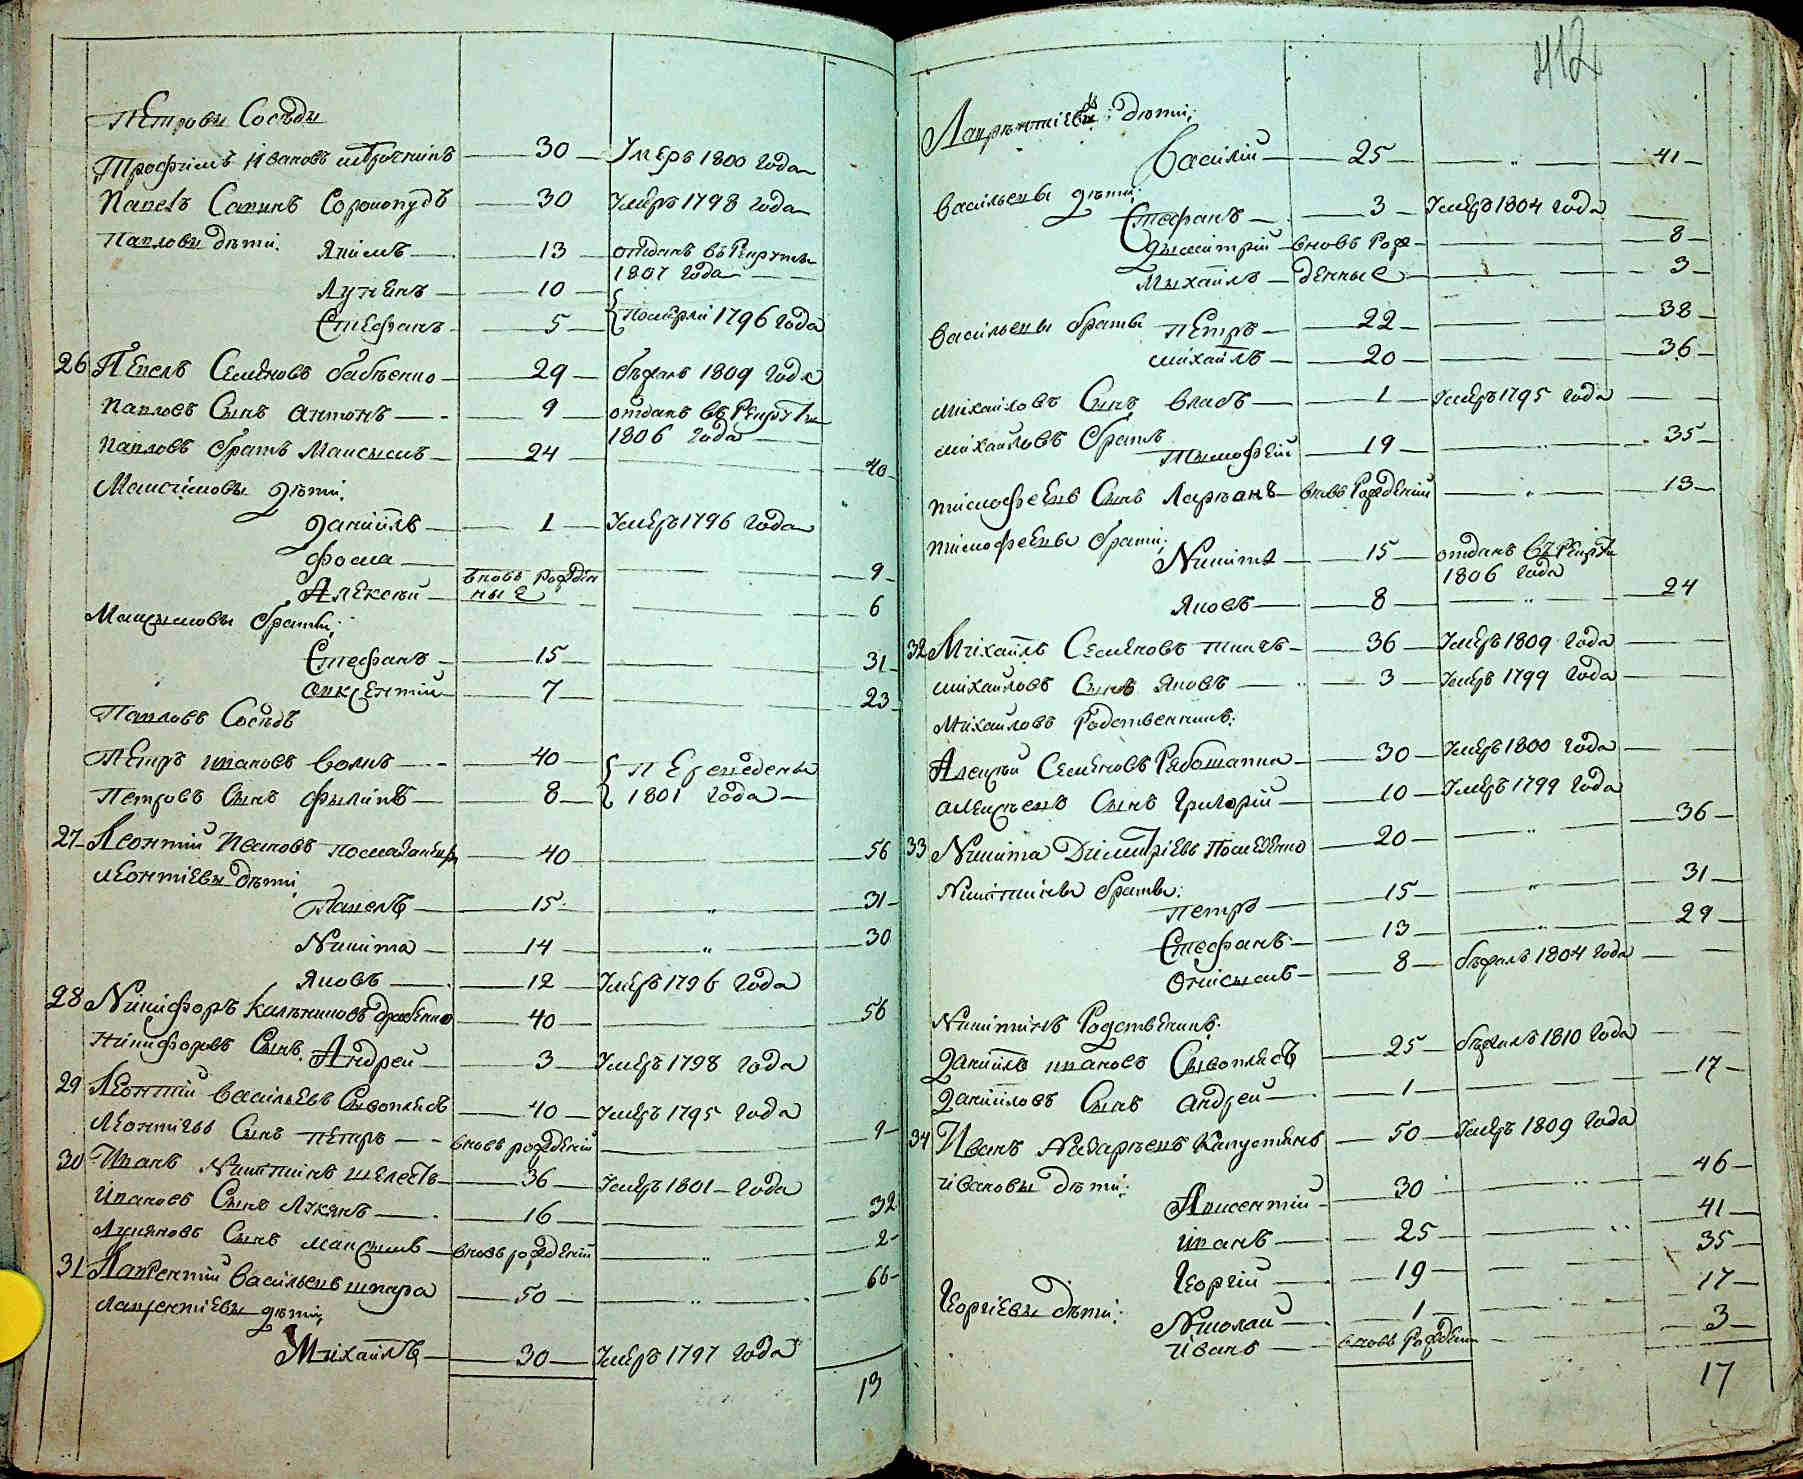 412
Петровы Соседи
Трофимъ Ивановъ 30 Умеръ 1800 года
Павелъ Савинъ Соромопудъ 30 Умеръ 1798 года
Павловы дети. Якимъ 13 отданъ въ Рекруты
1807 года
Лукянъ 10
Стефанъ 5 Померли 1796 года
26 Павелъ Семеновъ бабченко 29 бежалъ 1809 года
Павловъ Сынъ антонъ 9 отданъ въ Рекруты
1806 года
Павловъ братъ Максымъ 24 40
Максимовы дети.
даниилъ 1 Умеръ 1796 года
фома вновь рожден 9
Алексей ные 6
Максымовы браты:
Стефанъ 15 31
авксентий 7 23
Павловъ Соседъ
Петръ ивановъ вовкъ 40 Переведены
Петровъ Сынъ филипъ 8 1801 года
27 Леонтий Ивановъ 40 56
леонтиевы дети
Павелъ 15 " 31
Никита 14 " 30
Яковъ 12 Умеръ 1796 года
28 Никифоръ Калениковъ 40 56
Никифоровъ Сынъ. Андрей 3 Умеръ 1798 года
29 Леонтий васильевъ Сывоплясъ 40 Умеръ 1795 года
Леонтиевъ Сынъ петръ вновь рожденій 9
30 Иванъ Никитинъ шелестъ 36 Умеръ 1801 года
ивановъ Сынъ Лукянъ 16 32
Лукяновъ Сынъ максымъ вновь рожденій " 2
31 Лаврентий васильевъ шпара 50 " 66
лаврентиевы дети,
Михаилъ 30 Умеръ 1797 года
13
Лаврентиевы дети;
василий 25 " 41
васильевы дети:
Стефанъ 3 Умеръ 1804 года
дымитрий вновь Рож 8
Мыхаилъ денные 3
васильевы браты Петръ 22 38
михаилъ 20 36
михайловъ Сынъ власъ 1 Умеръ 1795 года
михайловъ братъ
Тымофей 19 " 35
тимофеевъ Сынъ Ларионъ вновь Рожденій " 13
тимофеевы браты;
Никита 15 отданъ въ Рекруты
1806 года
Яковъ 8 " 24
32 Михаилъ Семеновъ ткачъ 36 Умеръ 1809 года
михайловъ Сынъ Яковъ 3 Умеръ 1799 года
Михайловъ Родственникъ:
Алексей Семеновъ Рябошапка 30 Умеръ 1800 года
алексеевъ Сынъ Григорий 10 Умеръ 1799 года
33 Никита Димитриевъ 20 " 36
Никитины браты:
петръ 15 " 31
Стефанъ 13 " 29
Онисымъ 8 бежалъ 1804 года
Никитинъ Родственикъ.
даниилъ ивановъ Сывоплясъ 25 бежалъ 1810 года
данииловъ Сынъ андрей 1 17
34 Иванъ Назаревъ Капустянъ 50 Умеръ 1809 года
ивановы дети:
Авксентий 30 " 46
иванъ 25 " 41
Георгий 19 35
Георгиевы дети: Николай 1 17
иванъ вновь Рожденій 3
17